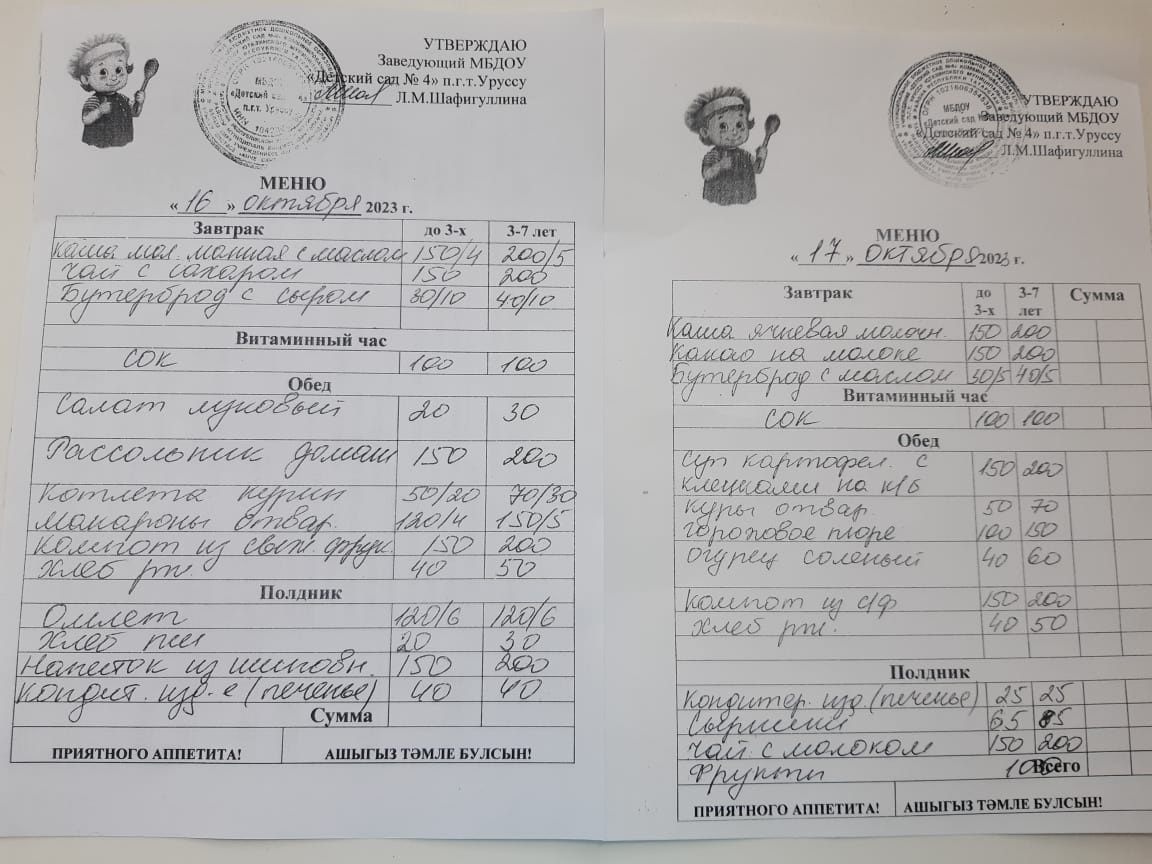 УТВЕРЖДАЮ
Заведующий МБДОУ
«Детский сад № 4» п.г.т.Уруссу
Л.М.Шафигуллина
МБДОУ
«Детский
п.г.т. Уруссу
МЕНЮ
«16» октября 2023 г.
Завтрак до 3-х 3-7 лет
Каша мол. манная с маслом 150/4 200/5
Чай с сахаром 150 200
Бутерброд с сыром 30/10 40/10
Витаминный час
сок 100 100
Обед
Салат луковый 20 30
Рассольник домаш 150 200
Котлета курин 50/20 70/30
макароны отвар. 120/4 150/5
Компот из свеж. фрук. 150 200
Хлеб рж. 40 50
Полдник
Омлет 120/6 120/6
Хлеб пш 20 30
Напиток из шиповн. 150 200
Кондит. изд-е (печенье) 40 40
Сумма
ПРИЯТНОГО АППЕТИТА! АШЫГЫЗ ТӘМЛЕ БУЛСЫН!
УТВЕРЖДАЮ
Заведующий МБДОУ
«Детский сад № 4» п.г.т.Уруссу
Л.М.Шафигуллина
МБДОУ
«Детский сад
п.г.т. Уруссу
МЕНЮ
«17» октября 2023 г.
Завтрак до 3-х 3-7 лет Сумма
Каша ячневая молочн. 150 200
Какао на молоке 150 200
Бутерброд с маслом 30/5 40/5
Витаминный час
сок 100 100
Обед
Суп картофел. с 150 200
клецками на к/б
куры отвар. 50 70
гороховое пюре 100 150
Огурец соленый 40 60
Компот из с/ф 150 200
Хлеб рж. 40 50
Полдник
Кондитер. изд. (печенье) 25 25
Сырники 65 85
Чай с молоком 150 200
Фрукты 100 Всего
ПРИЯТНОГО АППЕТИТА! АШЫГЫЗ ТӘМЛЕ БУЛСЫН!